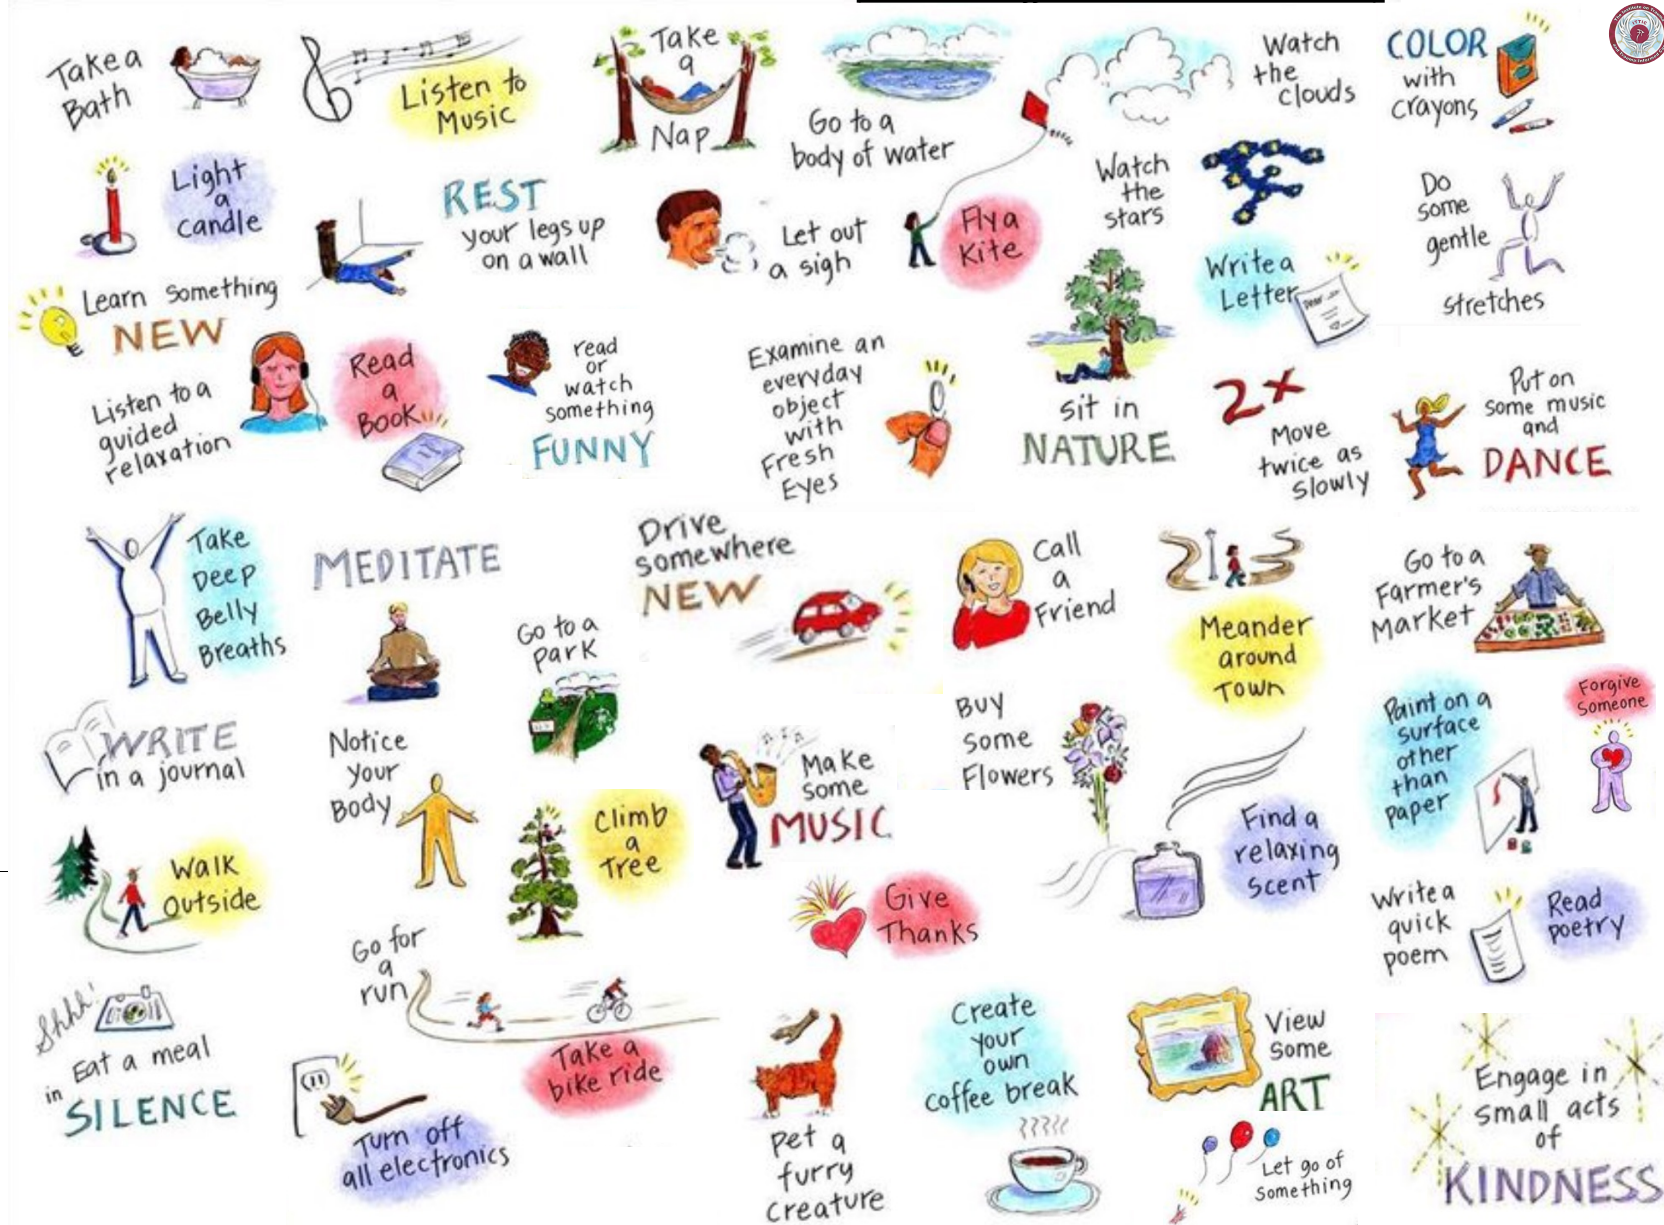 Take a
Bath
Listen to
Music
Take
a
Nap
Go to a
body of water
Watch
the
clouds
COLOR
with
crayons
Light
a
candle
REST
your legs up
on a wall
Let out
a sigh
Fly a
Kite
Watch
the
stars
Do
some
gentle
stretches
Learn something
NEW
Write a
Letter
Dear
Listen to a
guided
relaxation
Read
a
Book
read
or
watch
something
FUNNY
Examine an
everyday
object
with
Fresh
Eyes
sit in
NATURE
2x
Move
twice as
slowly
Put on
some music
and
DANCE
Take
Deep
Belly
Breaths
MEDITATE
Drive
somewhere
NEW
Call
a
Friend
Meander
around
Town
Go to a
Farmer's
Market
Go to a
park
WRITE
in a journal
Notice
your
Body
Make
some
MUSIC
Buy
some
Flowers
Paint on a
surface
other
than
paper
Forgive
Someone
Walk
outside
Climb
a
Tree
Find a
relaxing
scent
Give
Thanks
Write a
quick
poem
Read
poetry
Shhh!
Eat a meal
in SILENCE
Go for
a
run
Take a
bike ride
Turn off
all electronics
Pet a
furry
creature
Create
your
own
coffee break
View
some
ART
Let go of
something
Engage in
small acts
of
KINDNESS